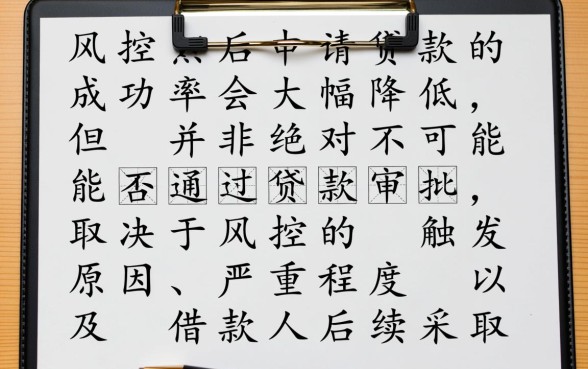 风控 后申请贷款的
成功率会大幅降低,
但 并非绝对不可能
能否通过贷款审批,
取决于风控的 触发
原因、严重程度 以
及 借款人后续采取